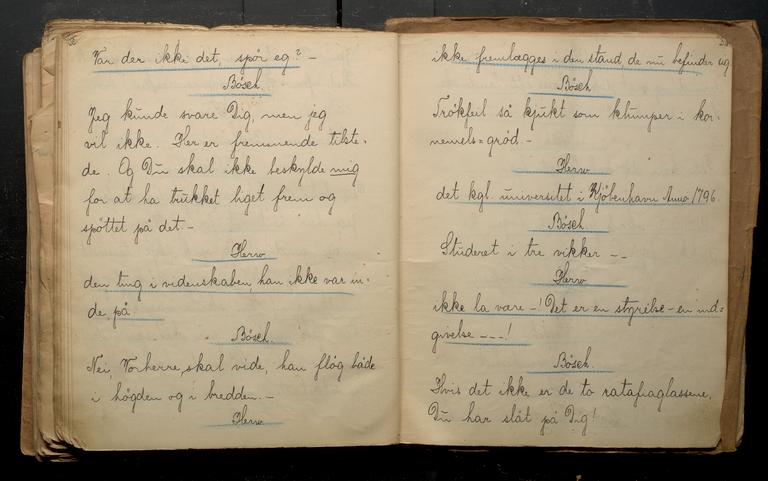 Var der ikke det, spör eg? -
Bösch.
Jeg kunde svare Dig, men jeg
vil ikke. Her er fremmende tilste-
de. Og Du skal ikke beskylde mig
for at ha trukket liget frem og
spöttet på det. -
Herw
den ting i videnskaben, han ikke var in-
de på
Bösch.
Nei, Vorherre skal vide, han flög både
i högden og i bredden. -
Herw
ikke fremlægges i den stand, de nu befinder sig
Bösch
Trökfeil så kjukt som klumper i kor-
nemels=gröd. -
Herw
det kgl. universitet i Kjöbenhavn Anno 1796
Bösch
Studeret i tre vikker --
Herw
ikke la være -! Det er en styrelse - en ind=
givelse ---!
Bösch.
Hvis det ikke er de to ratafiaglassene,
Du har slåt på Dig!